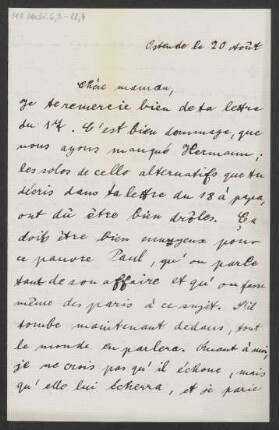 Ostende le 20 Août
Chère maman,
Je te remercie bien de ta lettre
du 17. C'est bien dommage, que
nous ayons manqué Hermann;
les solos de cello alternatifs que tu
décris dans ta lettre du 18 à papa,
ont dû être bien drôles. Ça
doit être bien ennuyeux pour
ce pauvre Paul, qu'on parle
tant de son affaire et qu'on fasse
même des paris à ce sujet. S'il
tombe maintenant dedans, tout
le monde en parlera. Quant à moi,
je ne crois pas qu'il échoue, mais
qu'elle lui et je parie